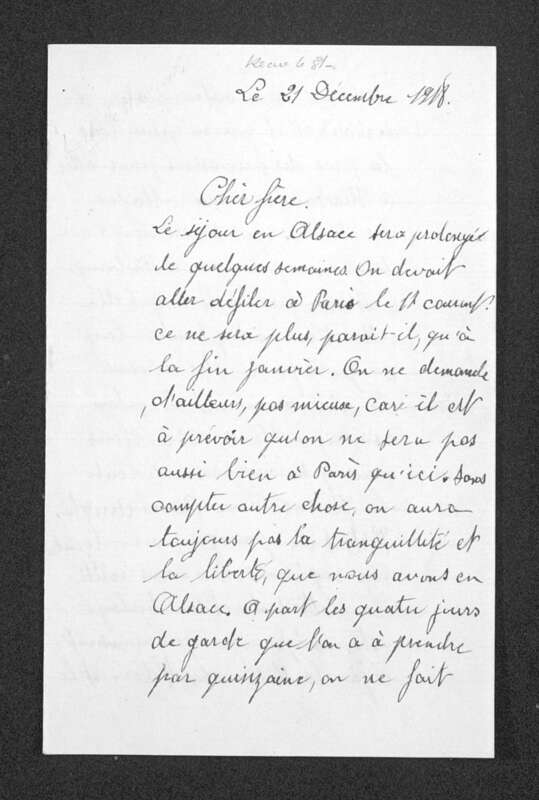 Le 21 Décembre 1918.
Cher frère.
Le séjour en Alsace sera prolongé
de quelques semaines. On devait
aller défiler à Paris le courant.
ce ne sera plus, parait-il, qu'à
la fin Janvier. On ne demande
d'ailleurs, pas mieux, car il est
à prévoir qu'on ne sera pas
aussi bien à Paris qu'ici. Sans
compter autre chose, on aura
toujours pas la tranquillité et
la liberté, que nous avons en
Alsace. A part les quatre jours
de garde que l'on a à prendre
par quinzaine, on ne fait